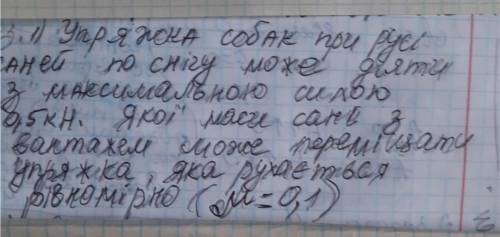 3.1) Упряжка собак при русі
саней по снігу може діяти
з максимальною силою
0,5кН. Якої маси сани з
вантажем може переміщати
упряжка, яка рухається
рівномірно (μ=0,1)